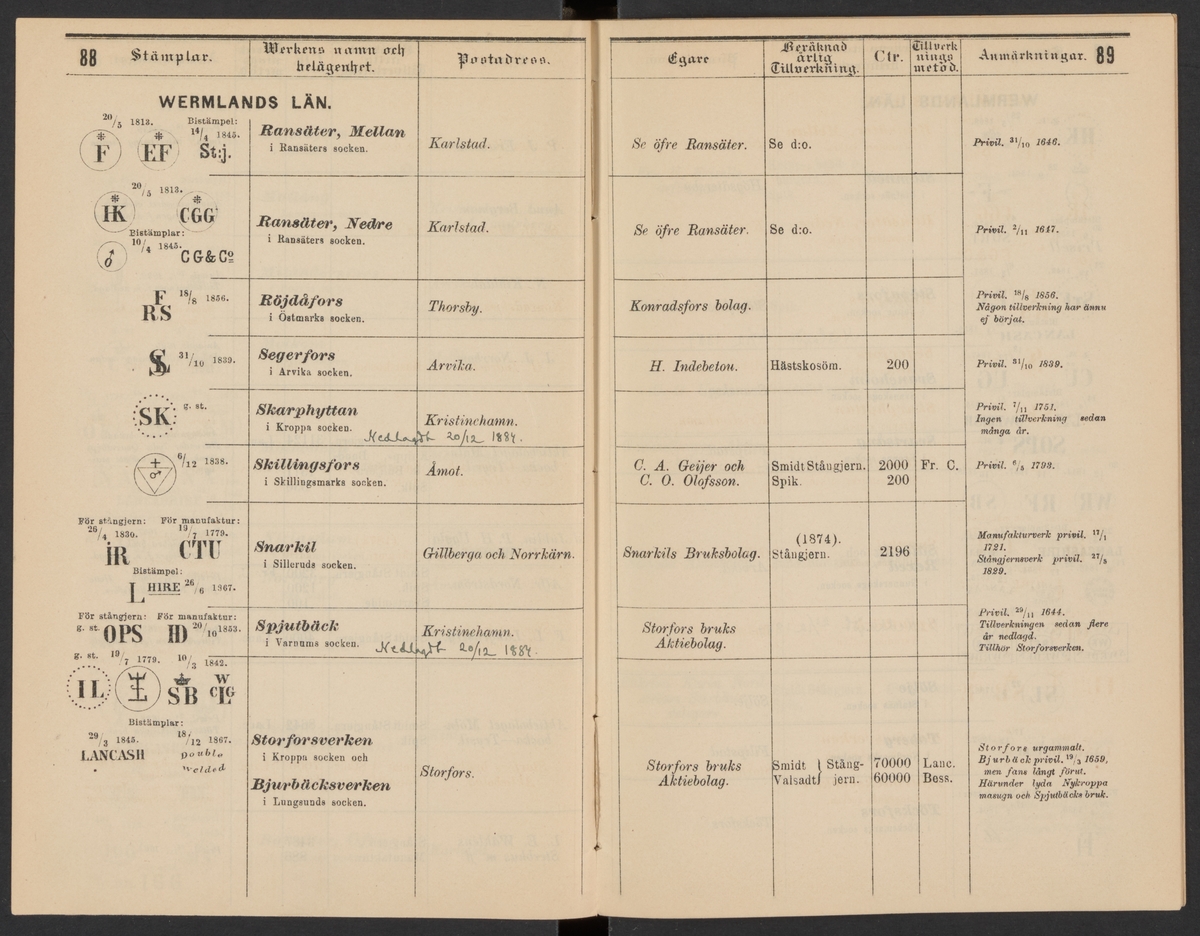 88 Stämplar. Werkens namn och belägenhet. Postadress. Egare Beräknad årlig Tillverkning. Ctr. Tillverknings metod. Anmärkningar. 89
WERMLANDS LÄN.
20/5 1813. Bistämpel: 14/4 1845.
F EF St:j.
Ransäter, Mellan
i Ransäters socken.
Karlstad.
Se öfre Ransäter.
Se d:o.
Privil. 31/10 1646.
20/5 1813.
HK CGG
Bistämplar:
10/4 1845.
♂ CG&Co
Ransäter, Nedre
i Ransäters socken.
Karlstad.
Se öfre Ransäter.
Se d:o.
Privil. 2/11 1647.
F
RS
18/8 1856.
Röjdåfors
i Östmarks socken.
Thorsby.
Konradsfors bolag.
Privil. 18/8 1856.
Någon tillverkning har ännu
ej börjat.
SL 31/10 1839.
Segerfors
i Arvika socken.
Arvika.
H. Indebetou.
Hästskosöm.
200
Privil. 31/10 1839.
SK g. st.
Skarphyttan
i Kroppa socken.
Kristinehamn.
Nedlagdt 20/12 1884.
Privil. 7/11 1751.
Ingen tillverkning sedan
många år.
♂ 6/12 1838.
Skillingsfors
i Skillingsmarks socken.
Åmot.
C. A. Geijer och
C. O. Olofsson.
Smidt Stångjern. 2000 Fr. C.
Spik. 200
Privil. 6/5 1793.
För stångjern: För manufaktur:
26/4 1830. 19/7 1779.
IR CTU
Bistämpel:
L HIRE 26/6 1867.
Snarkil
i Silleruds socken.
Gillberga och Norrkärn.
Snarkils Bruksbolag.
(1874).
Stångjern. 2196
Manufakturverk privil. 17/1
1721.
Stångjernsverk privil. 27/5
1829.
För stångjern: För manufaktur:
g. st. OPS HD 20/10 1853.
Spjutbäck
i Varnums socken.
Kristinehamn.
Nedlagdt 20/12 1884.
Storfors bruks
Aktiebolag.
Privil. 29/11 1644.
Tillverkningen sedan flere
år nedlagd.
Tillhör Storforsverken.
g. st. 19/7 1779. 10/3 1842.
IL SB W
CLG
Bistämplar:
29/3 1845. 18/12 1867.
LANCASH Double
Welded
Storforsverken
i Kroppa socken och
Bjurbäcksverken
i Lungsunds socken.
Storfors.
Storfors bruks
Aktiebolag.
Smidt } Stång- 70000 Lanc.
Valsadt } jern. 60000 Bess.
Storfors urgammalt.
Bjurbäck privil. 19/3 1659,
men fans långt förut.
Härunder lyda Nykroppa
masugn och Spjutbäcks bruk.